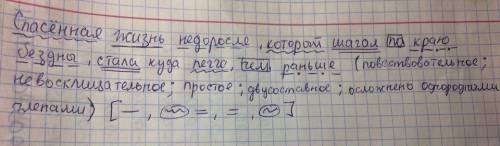 Спасённая жизнь недоросле, который шагал по краю
бездны, стала куда легче, чем раньше (повествовательное;
невосклицательное; простое; двусоставное; осложнено однородными
членами) [—, =, =, ]